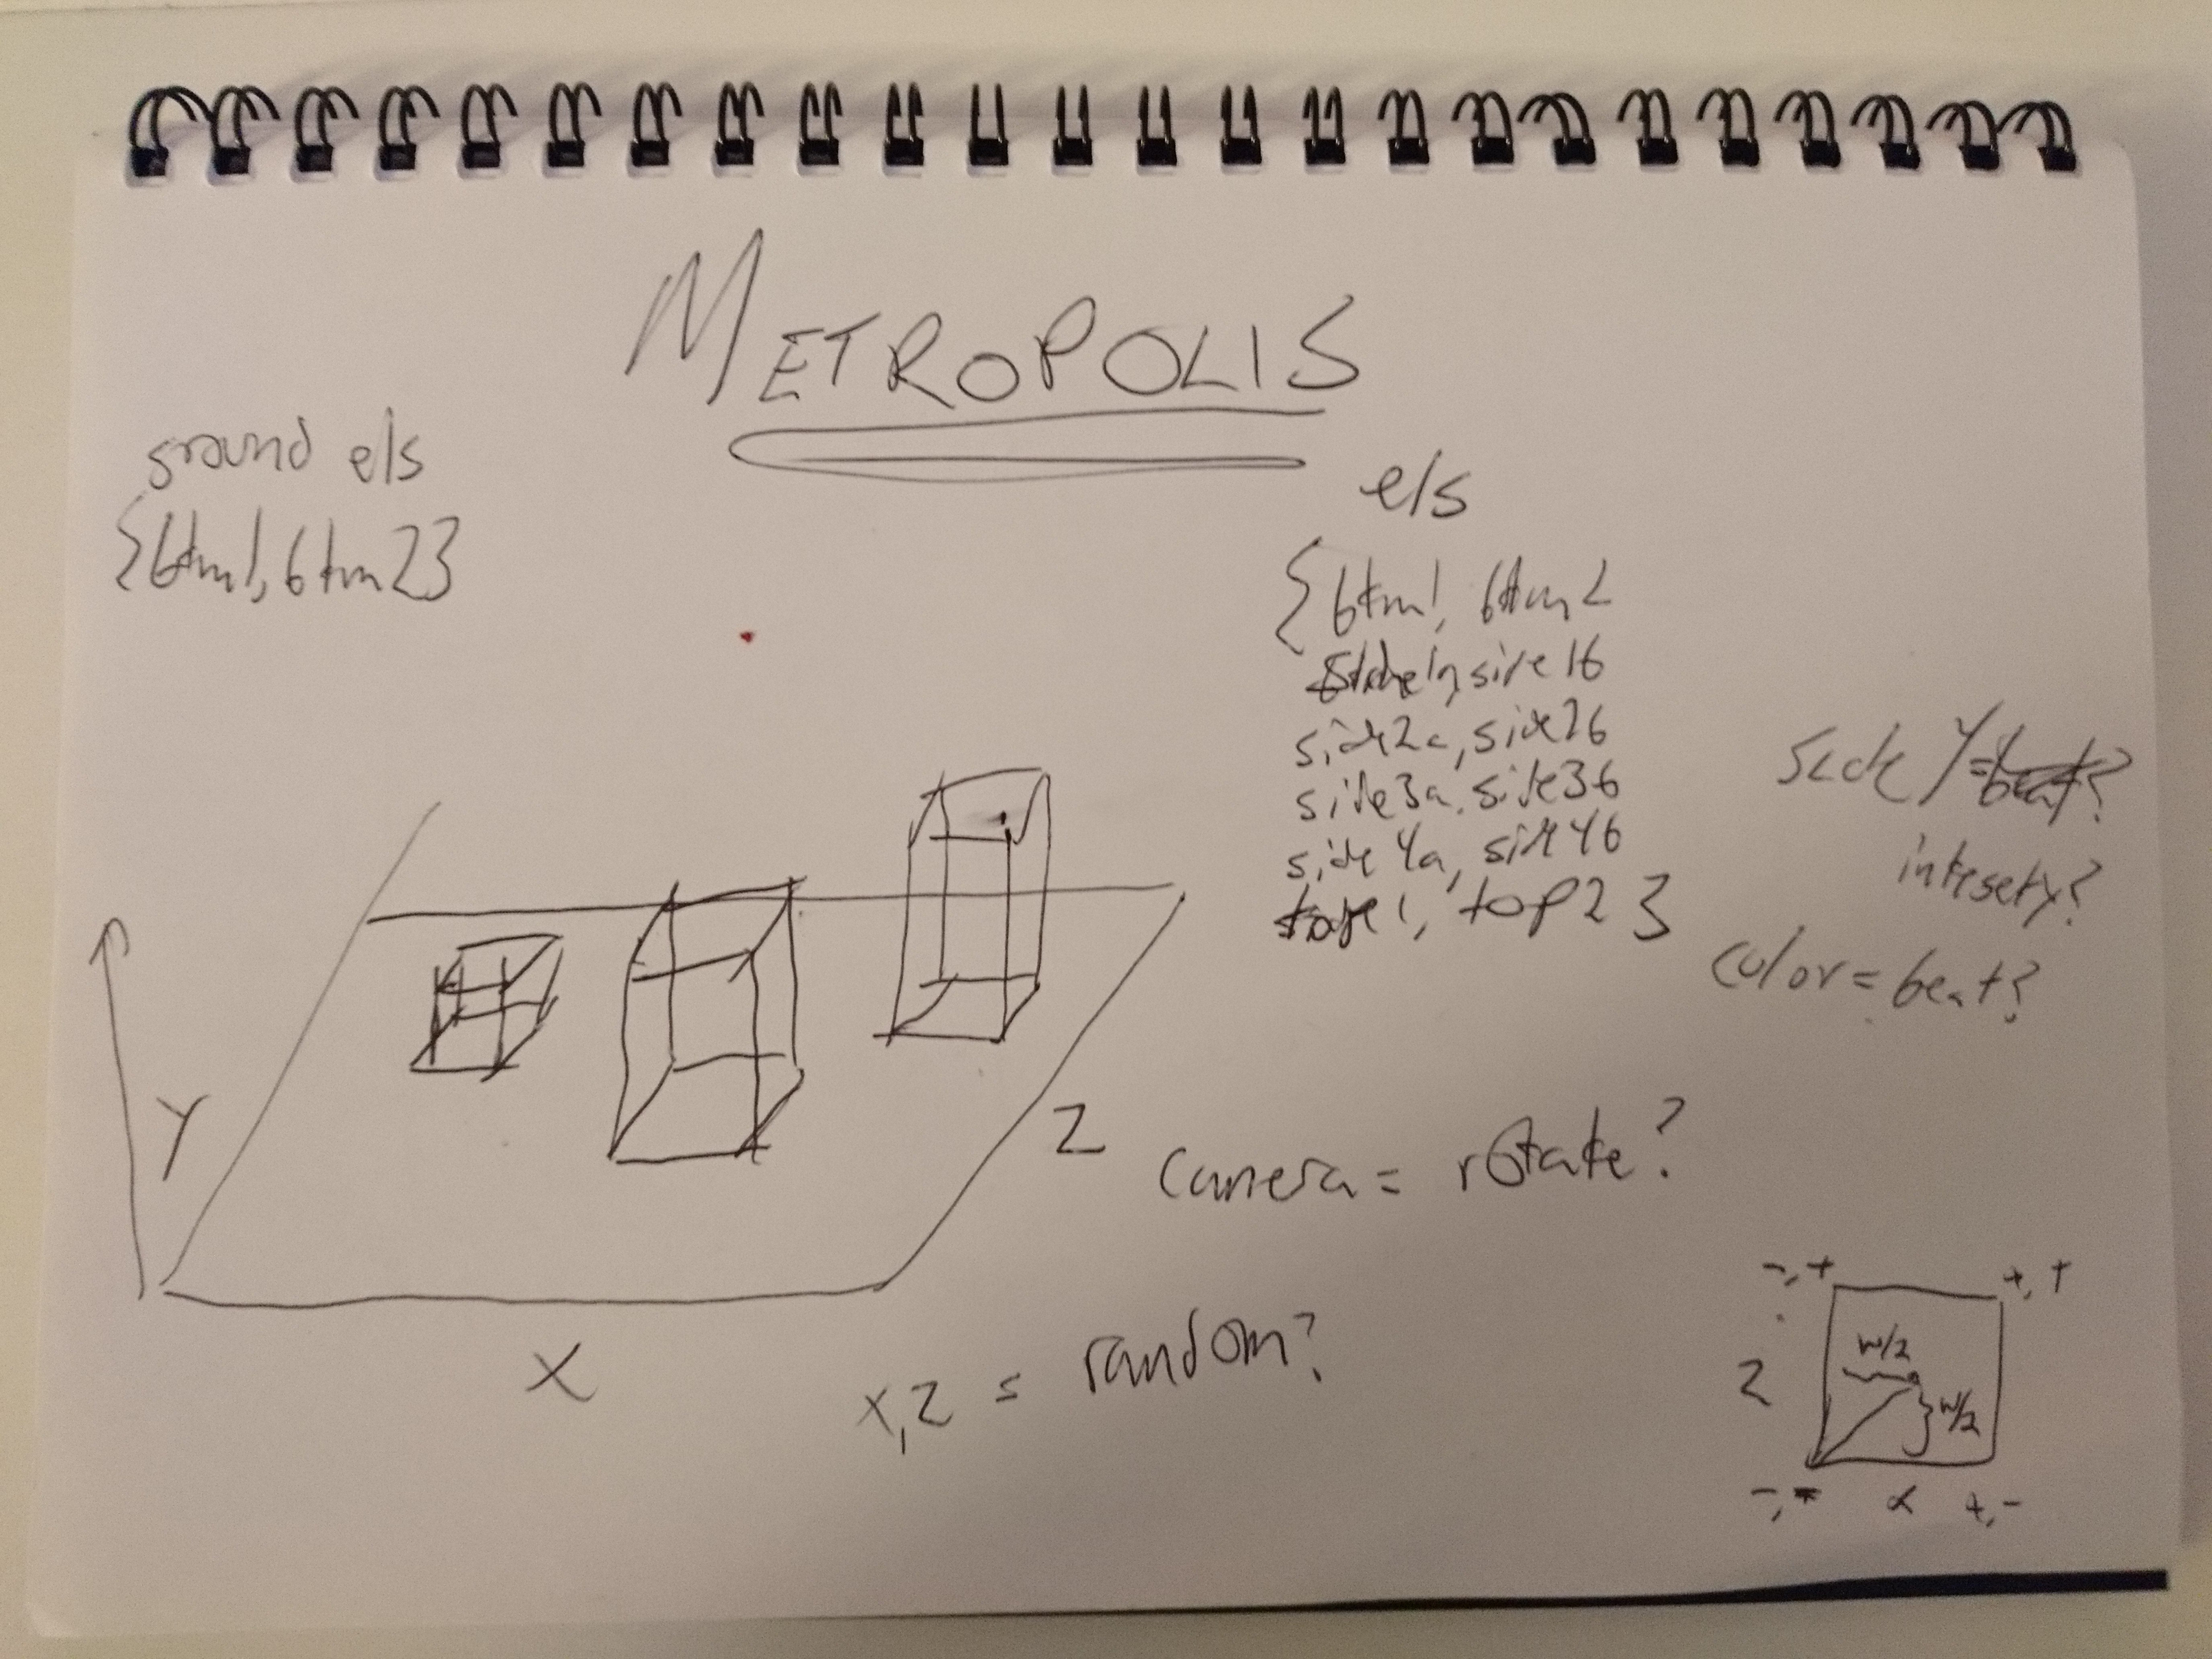 METROPOLIS
ground els
{btm1, btm2}
els
{btm1, btm2
side1a, side1b
side2a, side2b
side3a, side3b
side4a, side4b
top1, top2}
Y=beat?
color=beat?
Y
Z
X
camera = rotate?
x,z = random?
-,+
+,+
w/2
z
w/2
-,-
x
+,-